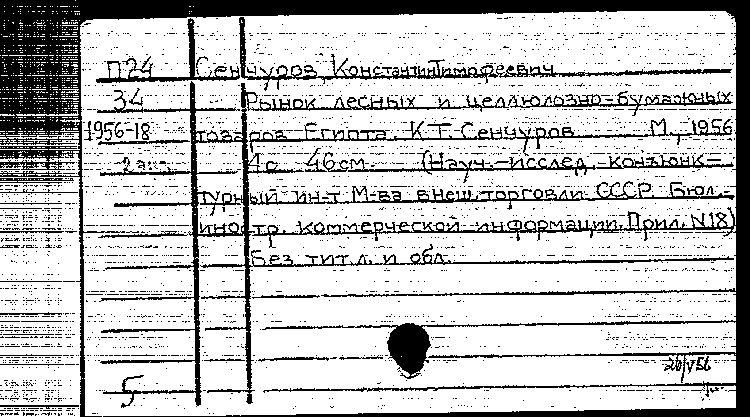 П24 Сенчуров, Константин Тимофеевич
34 Рынок лесных и целлюлозно-бумажных
1956-18 товаров Египта. К.Т. Сенчуров М., 1956
2 экз. 4с. 46см. (Науч.-исслед. конъюнк=
турный ин-т М-ва внеш. торговли СССР. Бюл.-
иностр. коммерческой информации. Прил. N18)
Без тит.л. и обл.
26/V 56
5